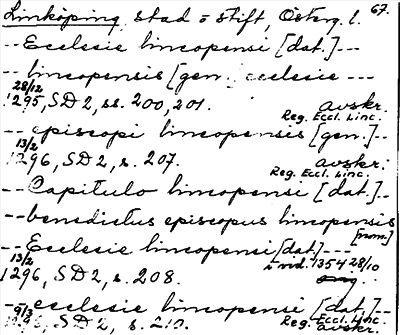 Linköping, stad o stift, Österg. l. 67.
-- Ecclesie lincopensi [dat.] ---
-- lincopensis [gen.] ecclesie ---
28/12 1295, SD 2, ss. 200, 201. avskr. Reg. Eccl. Linc.
-- episcopi lincopensis [gen.] --
13/2 1296, SD 2, s. 207. avskr. Reg. Eccl. Linc.
-- Capitulo lincopensi [dat.] --
-- benedictus episcopus lincopensis [nom.]
-- Ecclesie lincopensi [dat.] ---
13/2 1296, SD 2, s. 208. i vid. 1354 28/10
-- ecclesie lincopensi [dat.] --
9/3 SD 2, s. 210. avskr. Reg. Eccl. Linc.